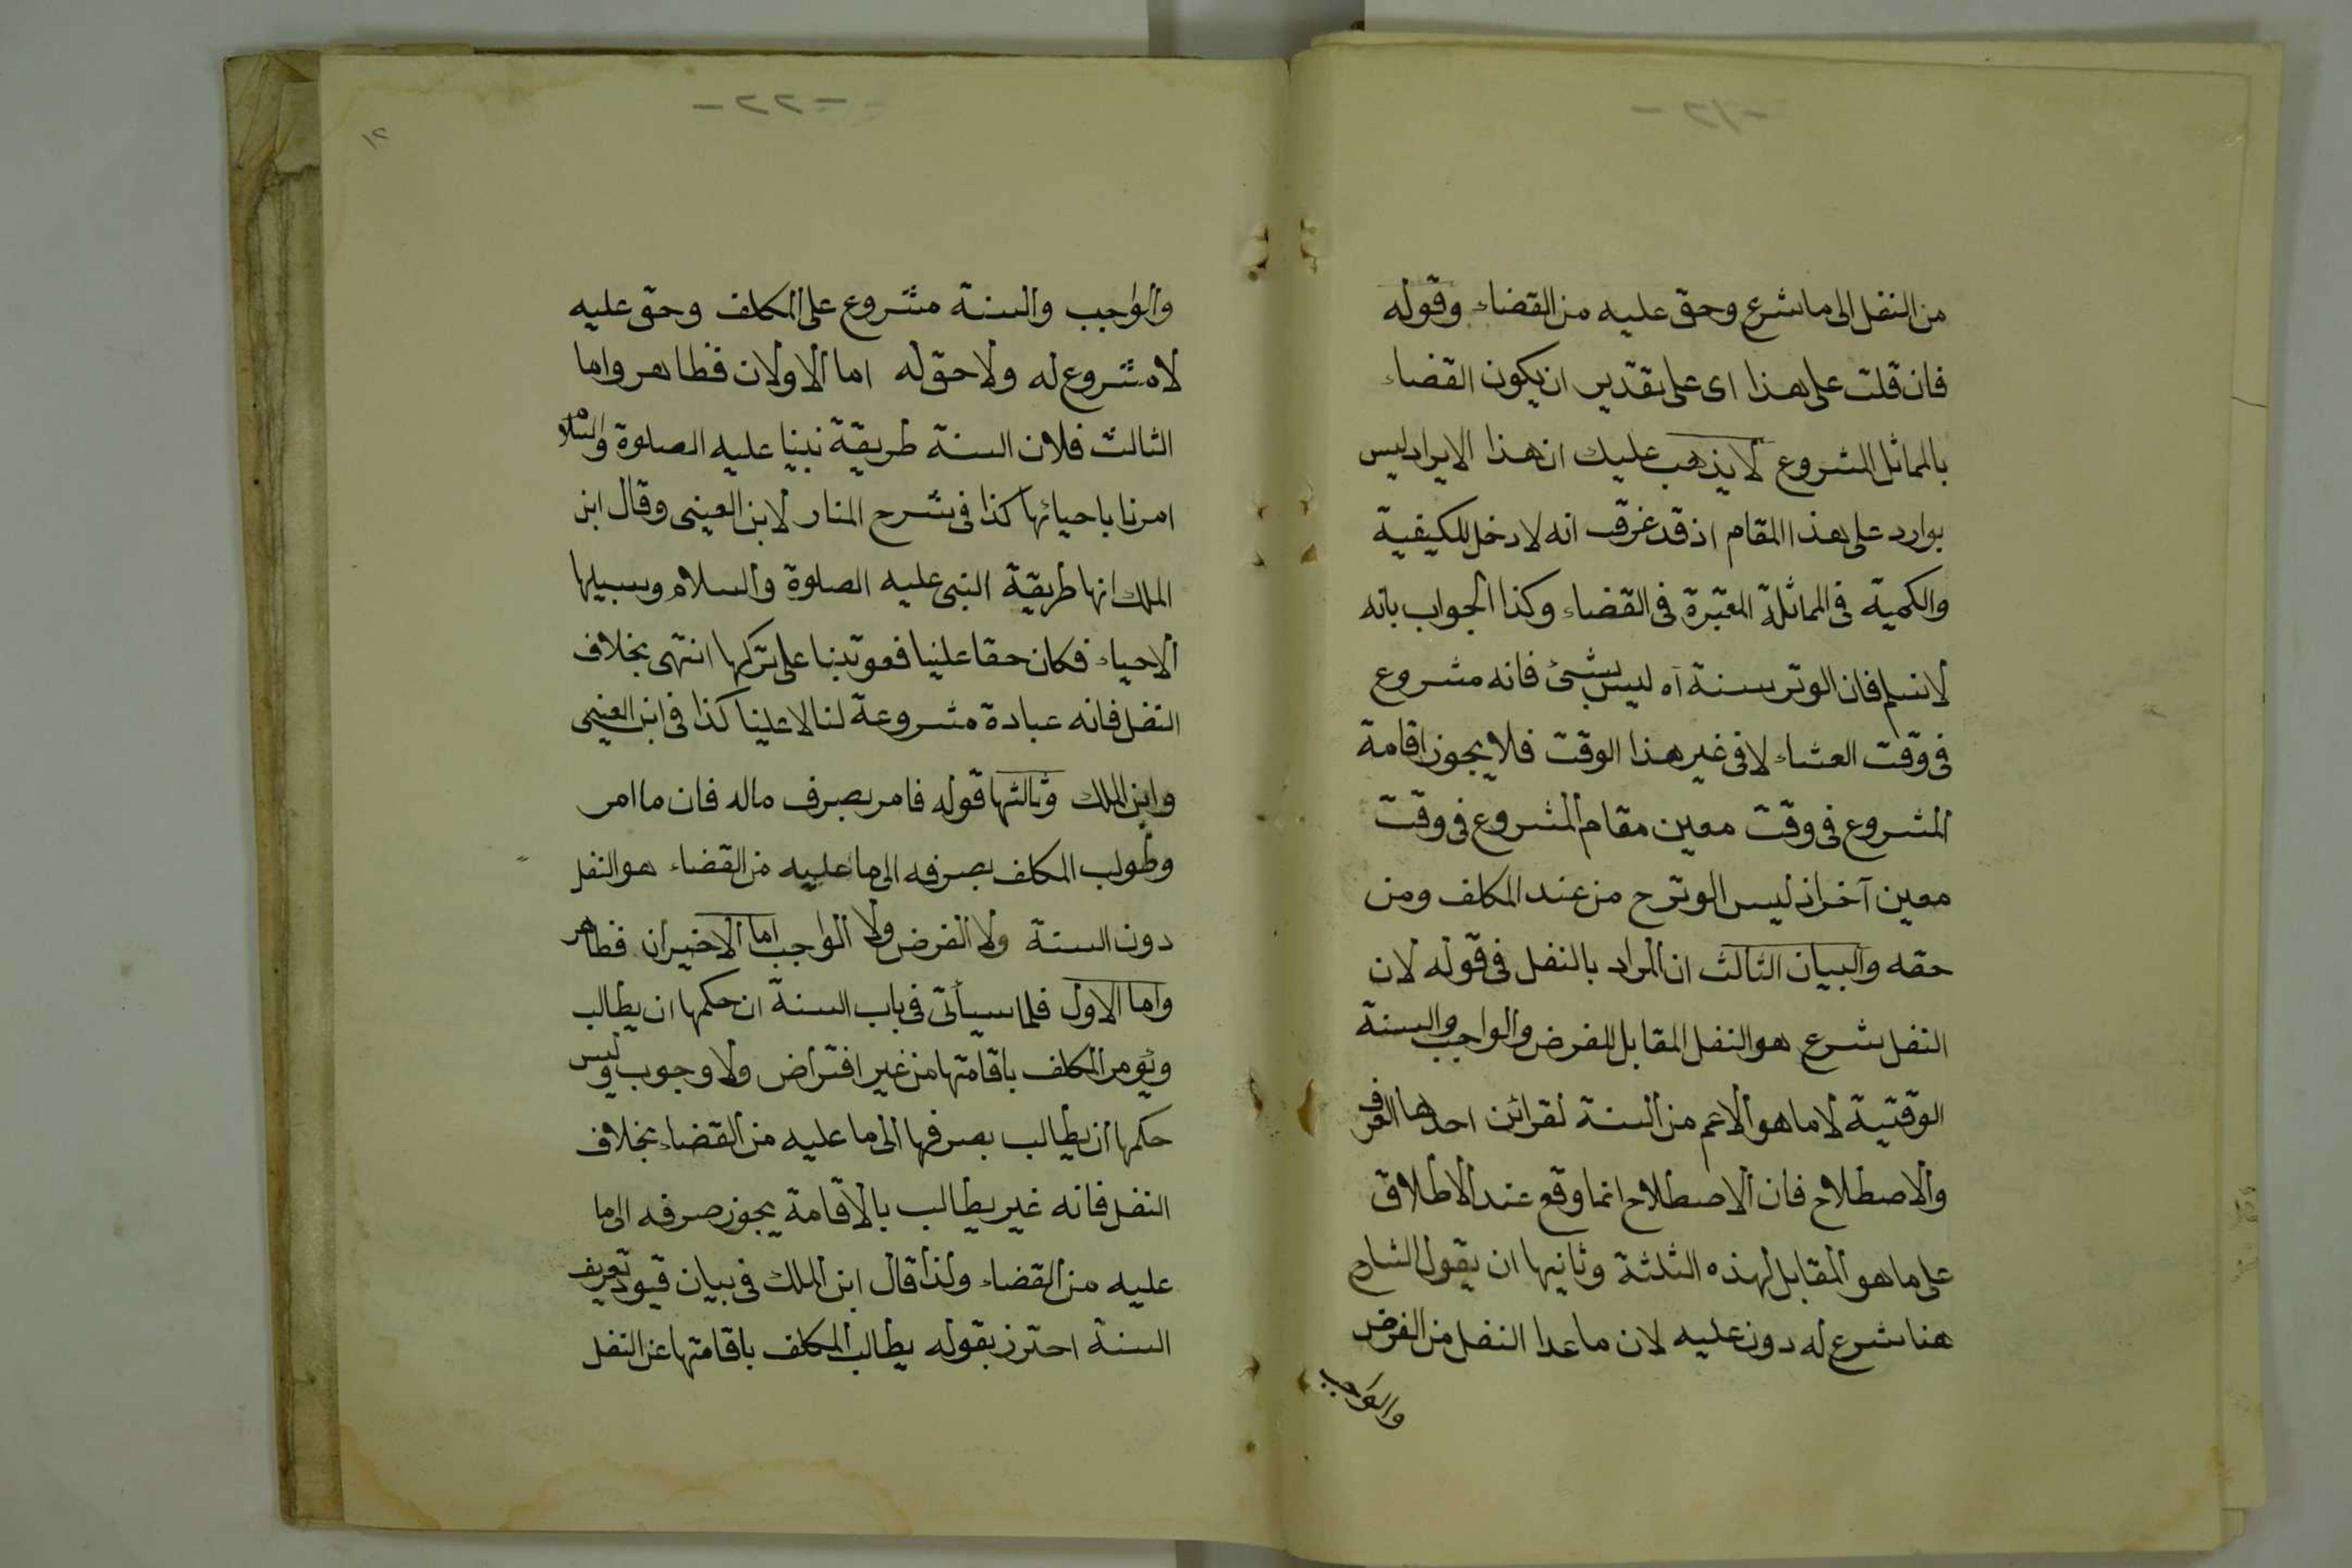 -٢١-
من النفل الى ما شرع وحق عليه من القضاء وقوله
فان قلت على هذا اى على تقدير ان يكون القضاء
بالمماثل المشروع لا يذهب عليك ان هذا الايراد ليس
بوارد على هذا المقام اذ قد عرفت انه لا دخل للكيفية
والكمية فى المماثلة المعتبرة فى القضاء وكذا الجواب بانه
لا نسلم فان الوتر سنة آه ليس بشئ فانه مشروع
فى وقت العشاء لا فى غير هذا الوقت فلا يجوز اقامة
المشروع فى وقت معين مقام المشروع فى وقت
معين آخر اذ ليس الوتر ح من عند المكلف ومن
حقه والبيان الثالث ان المراد بالنفل فى قوله لان
النفل شرع هو النفل المقابل للفرض والواجب والسنة
الوقتية لا ما هو الاعم من السنة لقرائن احدها العرف
والاصطلاح فان الاصطلاح انما وقع عند الاطلاق
على ما هو المقابل لهذه الثلثة وثانيها ان يقول الشارح
هنا شرع له دون عليه لان ما عدا النفل من الفرض
والواجب
-٢٢-
١٢
والواجب والسنة مشروع على المكلف وحق عليه
لا مشروع له ولا حق له اما الاولان فظاهر واما
الثالث فلان السنة طريقة نبينا عليه الصلوة والسلام
امرنا باحيائها كذا فى شرح المنار لابن العينى وقال ابن
الملك انها طريقة النبى عليه الصلوة والسلام وسبيلها
الاحياء فكان حقا علينا فعوتبنا على تركها انتهى بخلاف
النفل فانه عبادة مشروعة لنا لا علينا كذا فى ابن العينى
وابن الملك وثالثها قوله فامر بصرف ماله فان ما امر
وطولب المكلف بصرفه الى ما عليه من القضاء هو النفل
دون السنة ولا الفرض ولا الواجب اما الاخيران فظاهر
واما الاول فلما سيأتى فى باب السنة ان حكمها ان يطالب
ويؤمر المكلف باقامتها من غير افتراض ولا وجوب وليس
حكمها ان يطالب بصرفها الى ما عليه من القضاء بخلاف
النفل فانه غير يطالب بالاقامة يجوز صرفه الى ما
عليه من القضاء ولذا قال ابن الملك فى بيان قيود تعريف
السنة احترز بقوله يطالب المكلف باقامتها عن النفل